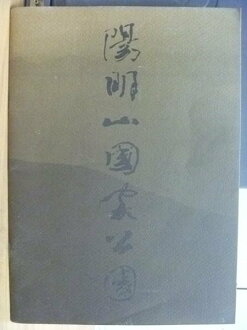 陽明山國家公園